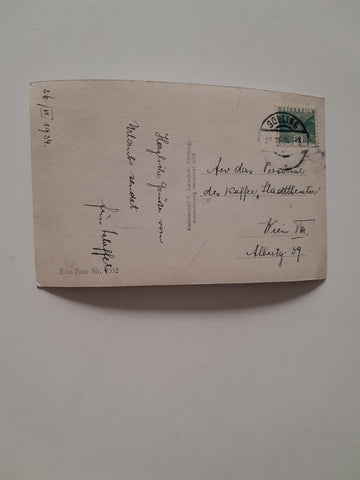 26/VI. 1934.
Herzliche Grüße vom
Urlaub sendet
Edn Foto Nr.
ÖSTERREICH
GOLLING
An das Personal
des Kaffee „Stadttheater"
Wien VIII.
Albertg. 39.